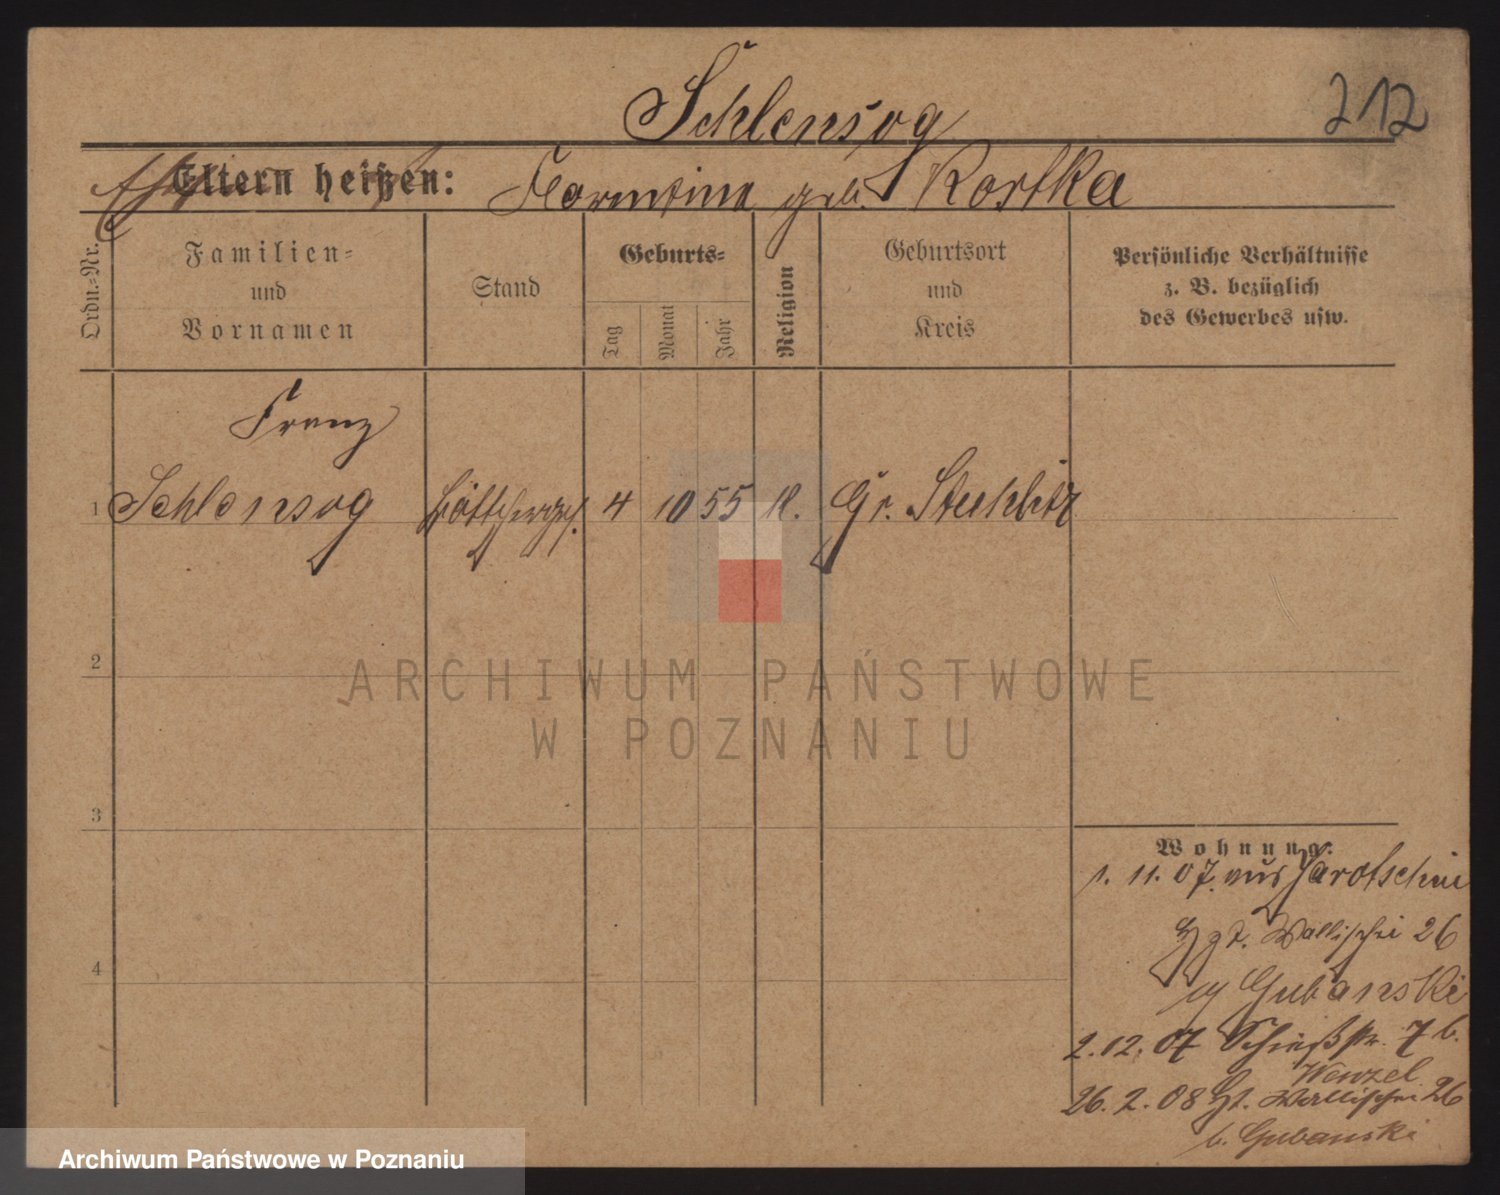 Schlensog
212
Eltern heißen:
geb. Kostka
Ordn.-Nr.
Familien-
und
Vornamen
Stand
Geburts-
Tag
Monat
Jahr
Religion
Geburtsort
und
Kreis
Persönliche Verhältnisse
z. B. bezüglich
des Gewerbes usw.
Franz
1 Schlensog Böttcherges. 4 10 55 K. Gr.
2
3
4
Wohnung:
1. 11. 07. aus Jarotschin
Wallischei 26
Gubanski
2. 12. 07 Schießstr. 7 b.
Wenzel
26. 2. 08 Wallischei 26
b. Gubanski
ARCHIWUM PAŃSTWOWE
W POZNANIU
Archiwum Państwowe w Poznaniu